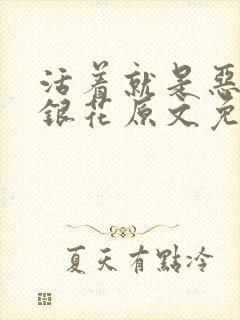 活着就是惡
銀花原文免
夏天有點冷